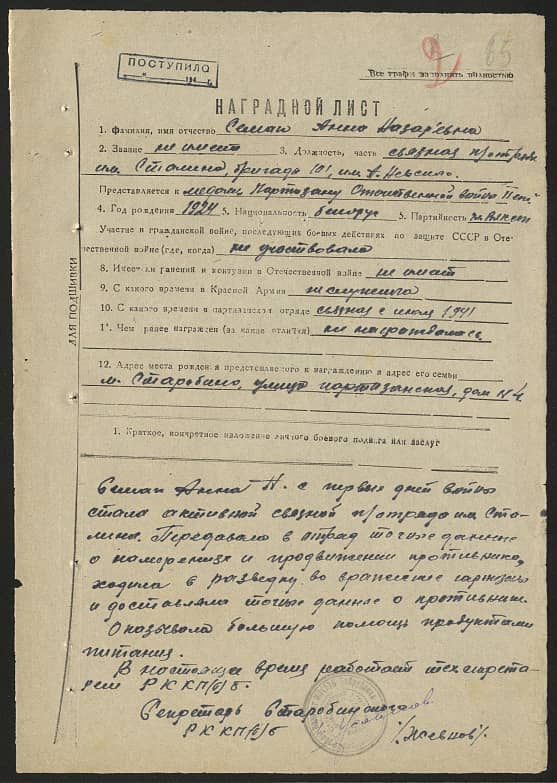 2 65
ПОСТУПИЛО
" " 194 г.
Все графы заполнять полностью
НАГРАДНОЙ ЛИСТ
1. Фамилия, имя отчество Семак Анна Назарьевна
2. Звание не имеет 3. Должность, часть связная п/отряда
им. Сталина, бригада 101, им. А. Невского
Представляется к медали "Партизану Отечественной войны II ст."
4. Год рождения 1924 5. Национальность белорус 5. Партийность чл. ВЛКСМ
Участие в гражданской войне, последующих боевых действиях по защите СССР в Оте-
чественной войне (где, когда) не участвовала
8. Имеет ли ранения и контузии в Отечественной войне не имеет
9. С какого времени в Красной Армии не служила
10. С какого времени в партизанском отряде связная с июля 1941
11. Чем ранее награжден (за какие отличия) не награждалась
12. Адрес места рождения представляемого к награждению и адрес его семьи
м. Старобино, улица партизанская, дом № 4.
ДЛЯ ПОДШИВКИ
1. Краткое, конкретное изложение личного боевого подвига или заслуг
Семак Анна Н. с первых дней войны
стала активной связной п/отряда им. Ста-
лина. Передавала в отряд точные данные
о намерениях и продвижении противника,
ходила в разведку во вражеские гарнизоны
и доставляла точные данные о противнике.
Оказывала большую помощь продуктами
питания.
В настоящее время работает техсекрета-
рем РК КП/б/Б.
Секретарь Старобинского
РК КП/б/Б /Жевнов/.